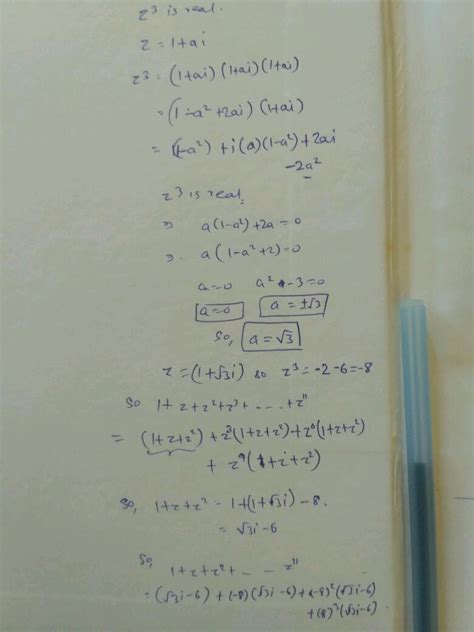 z³ is real.
z = 1+ai
z³ = (1+ai) (1+ai) (1+ai)
= (1-a²+2ai) (1+ai)
= (1-a²) + i(a)(1-a²) + 2ai
-2a²
z³ is real.
⇒ a(1-a²)+2a=0
⇒ a(1-a²+2)=0
a=0 a²-3=0
a=0 a=±√3
So, a=√3
z = (1+√3i) so z³ = -2-6=-8
So 1+z+z²+z³+ - - - +z¹¹
= (1+z+z²) + z³(1+z+z²)+z⁶(1+z+z²)
+ z⁹(1+z+z²)
So, 1+z+z² = 1+(1+√3i)-8.
= √3i-6
So, 1+z+z²+ - - z¹¹
= (√3i-6) + (-8)(√3i-6)+(-8)²(√3i-6)
+(8)³(√3i-6)